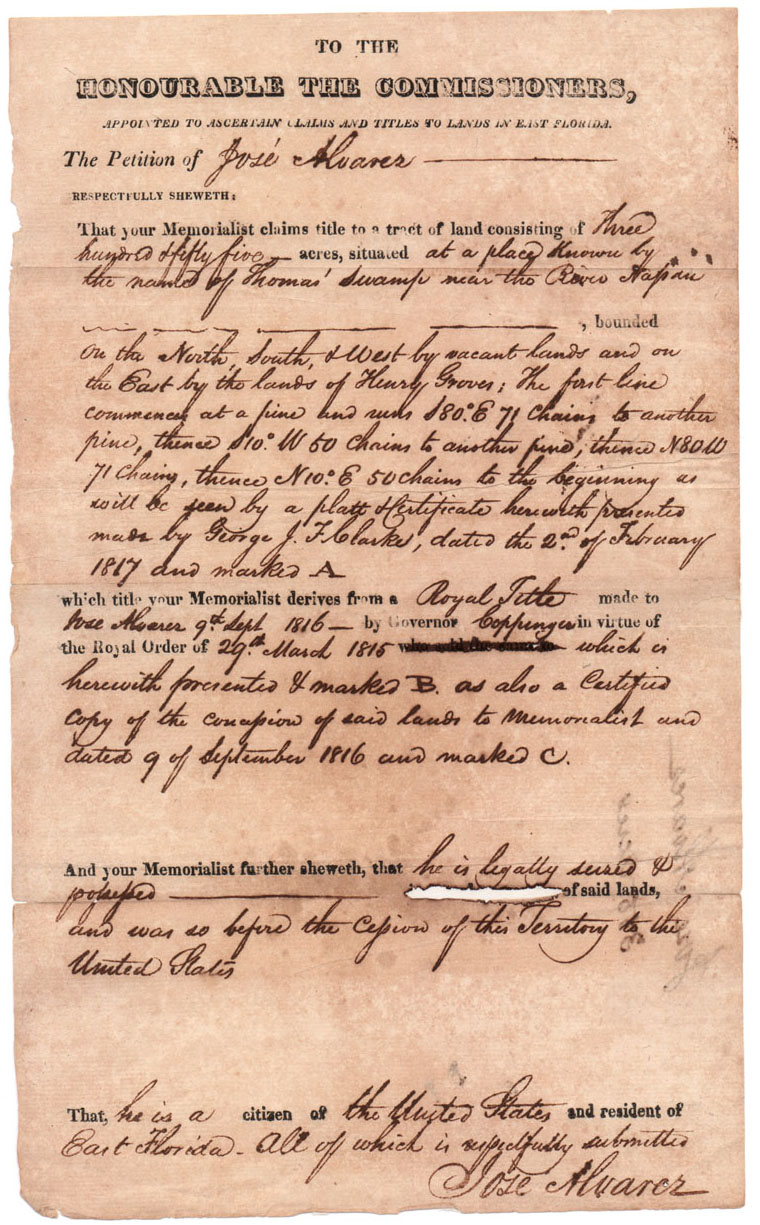 TO THE
HONOURABLE THE COMMISSIONERS,
APPOINTED TO ASCERTAIN CLAIMS AND TITLES TO LANDS IN EAST FLORIDA.
The Petition of José Alvarez
RESPECTFULLY SHEWETH:
That your Memorialist claims title to a tract of land consisting of Three
hundred & fifty five acres, situated at a place known by
the name of Thomas' Swamp near the River Nassau
, bounded
On the North, South, & West by vacant lands and on
the East by the lands of Henry Groves; The first line
commences at a pine and runs S80°.E 71 Chains to another
pine, thence S10°. W 50 Chains to another pine; thence N80W
71 Chains, thence N10°. E 50 chains to the beginning as
will be seen by a platt & Certificate herewith presented
made by George J. F. Clarke, dated the 2nd of February
1817 and marked A
which title your Memorialist derives from a Royal Title made to
Jose Alvarez 9th Sept 1816 — by Governor Coppinger in virtue of
the Royal Order of 29th March 1815 which is
herewith presented & marked B. as also a Certified
Copy of the concession of said lands to Memorialist and
dated 9 of September 1816 and marked C.
And your Memorialist further sheweth, that he is legally seized &
possessed of said lands,
and was so before the Cession of this Territory to the
United States
That, he is a citizen of the United States and resident of
East Florida - All of which is respectfully submitted
Jose Alvarez